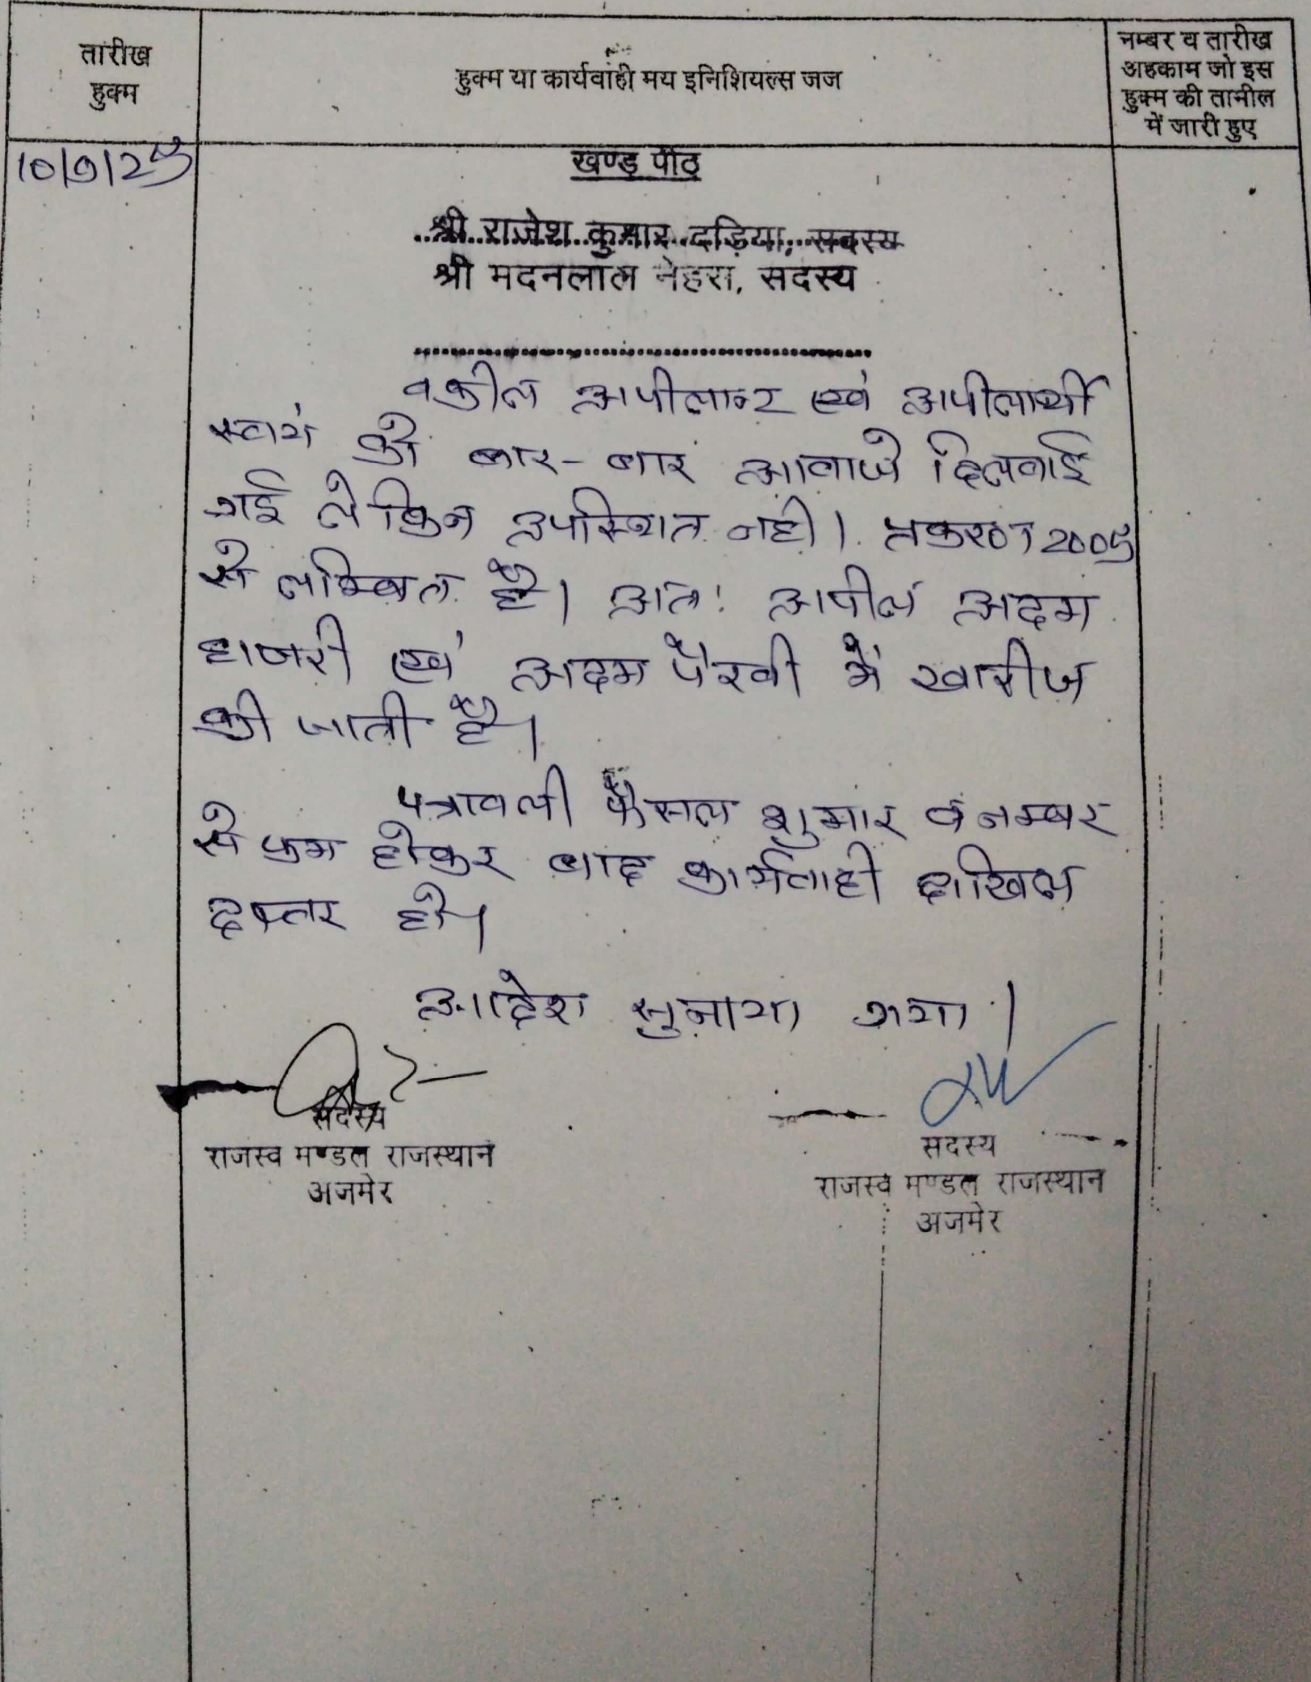 तारीख
हुक्म
हुक्म या कार्यवाही मय इनिशियल्स जज
नम्बर व तारीख
अहकाम जो इस
हुक्म की तामील
में जारी हुए
10/9/25
खण्ड पीठ
श्री राजेश कुमार दड़िया, सदस्य
श्री मदनलाल नेहरा, सदस्य
वकील अपीलान्ट एवं अपीलार्थी
स्वयं को बार-बार आवाजे दिलवाई
गई लेकिन उपस्थित नही। प्रकरण 2005
से लम्बित है। अतः अपील अदम
हाजरी एवं अदम पैरवी में खारीज
की जाती है।
पत्रावली फैसल शुमार व नम्बर
से कम होकर बाद कार्यवाही दाखिल
दफ्तर हो।
आदेश सुनाया गया।
सदस्य
राजस्व मण्डल राजस्थान
अजमेर
सदस्य
राजस्व मण्डल राजस्थान
अजमेर